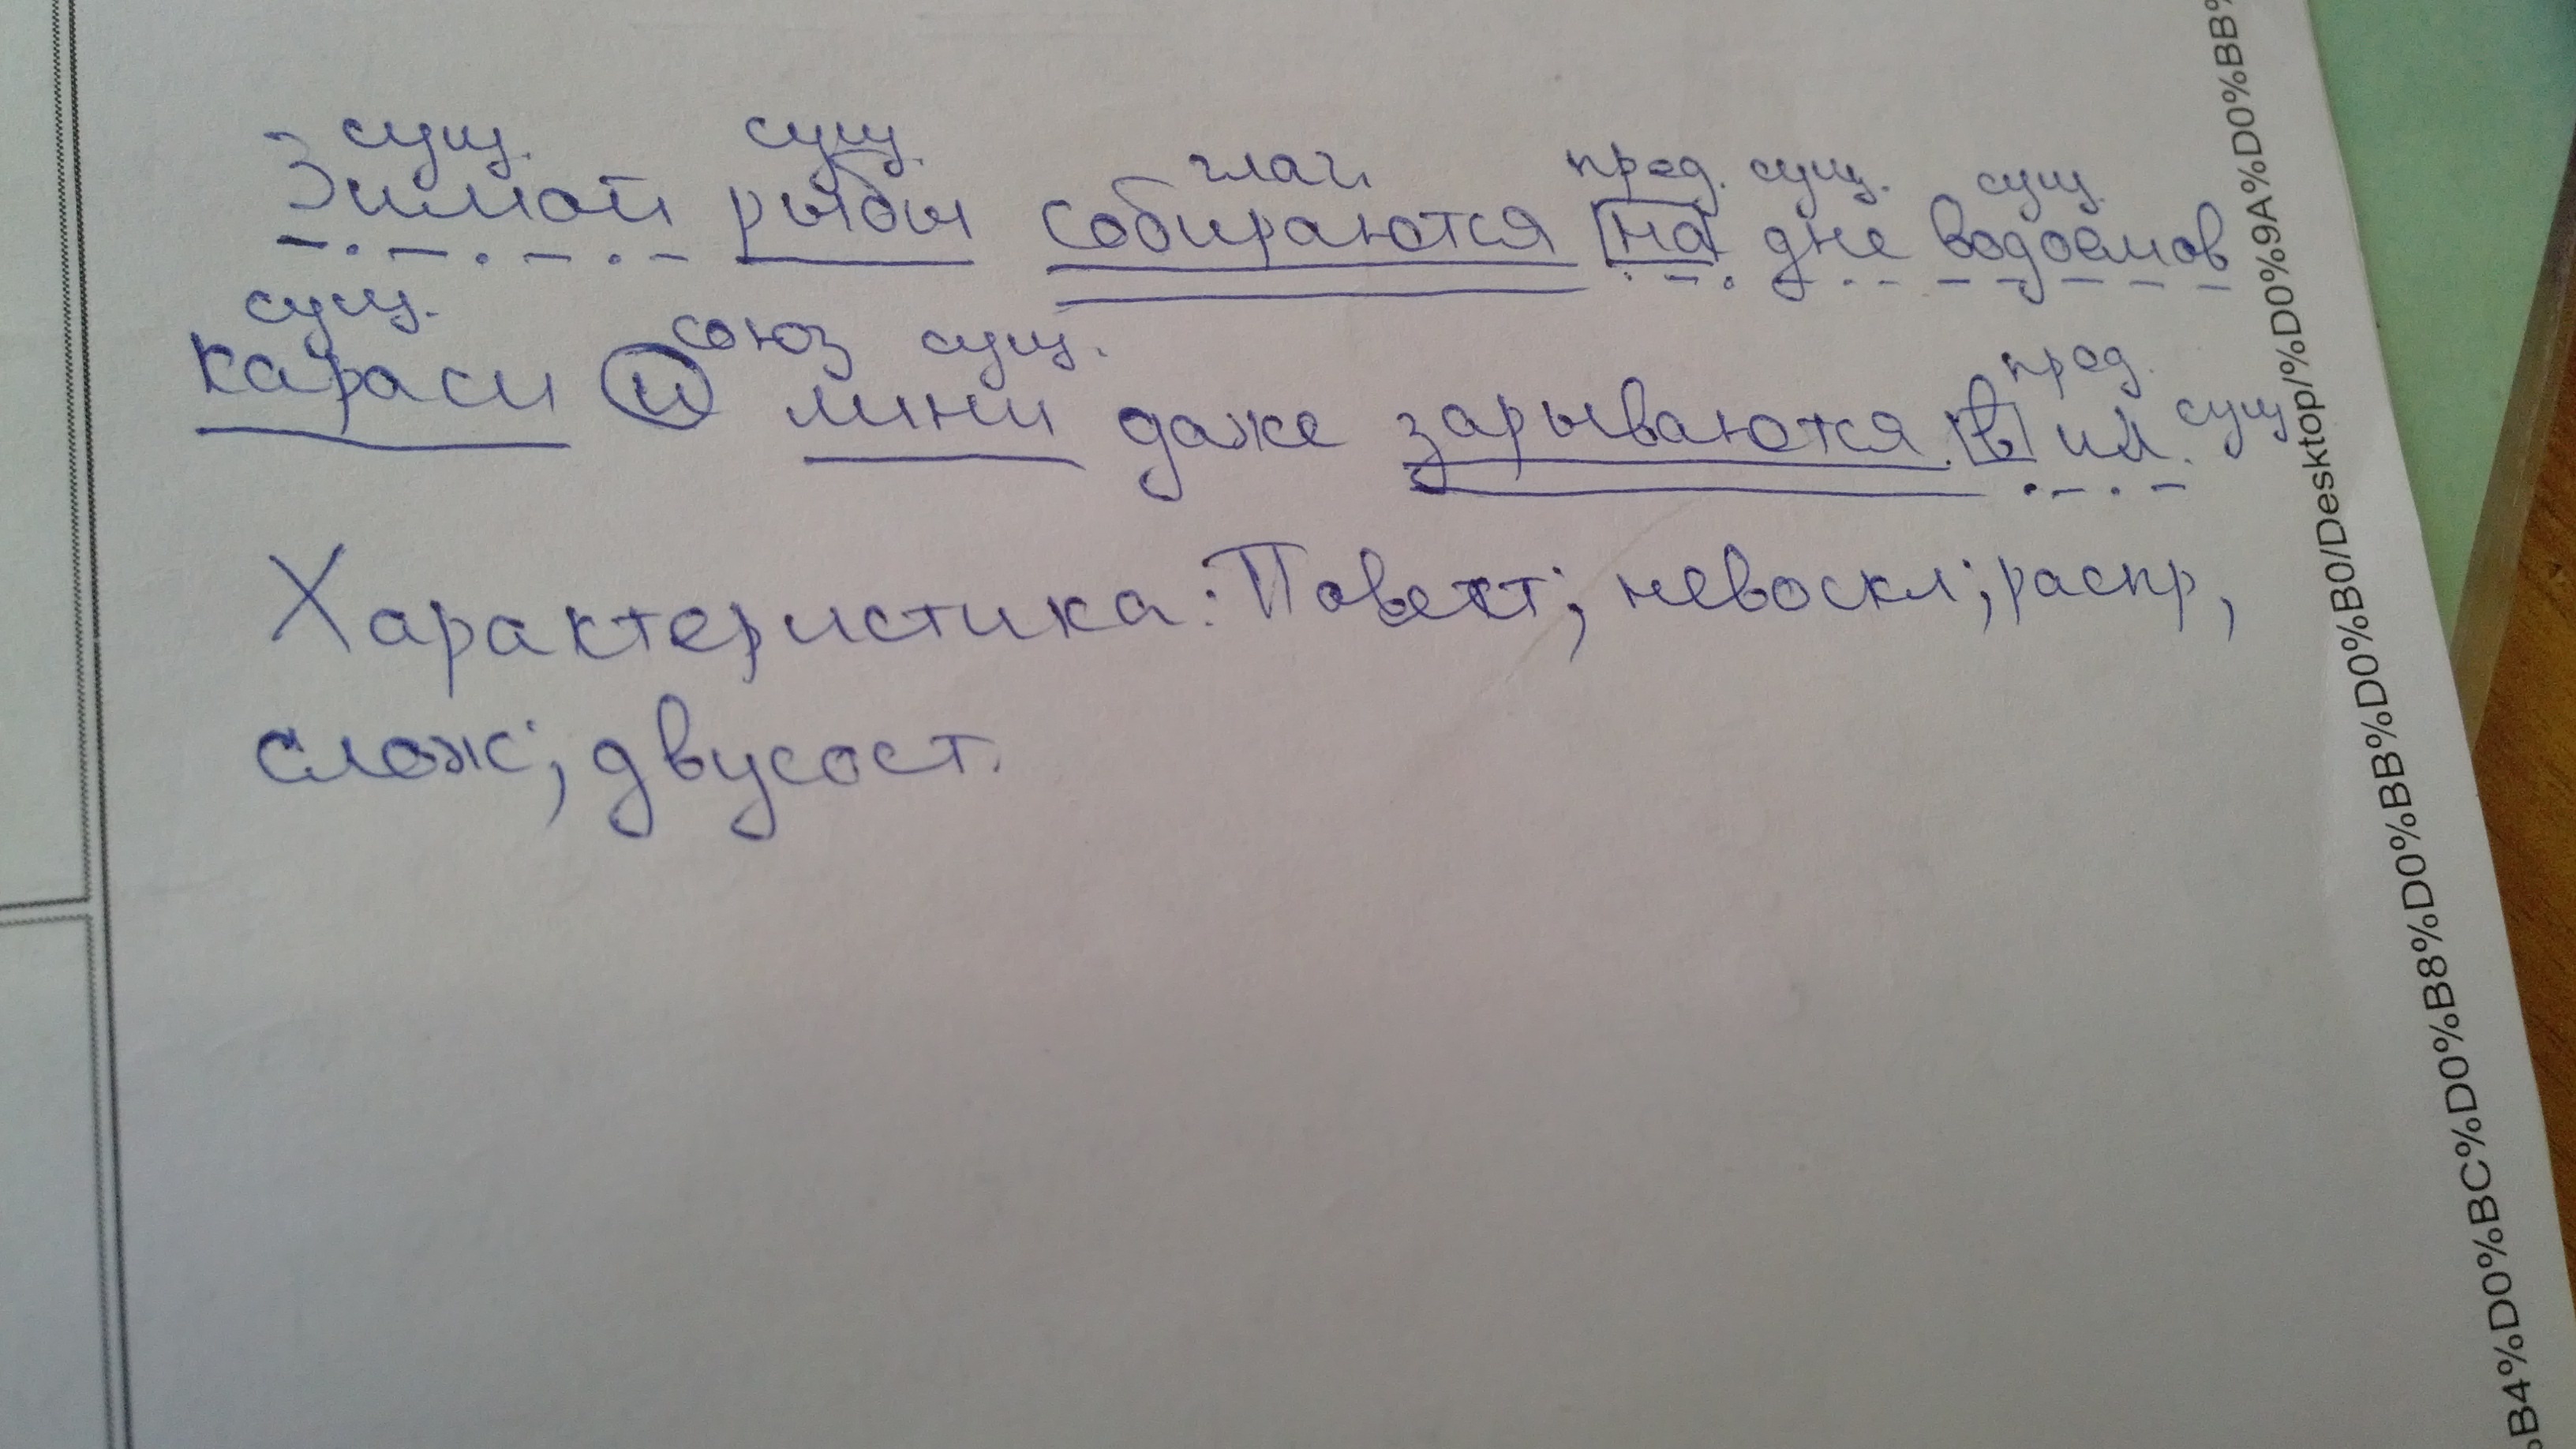 сущ. сущ. глаг. пред. сущ. сущ.
Зимой рыбы собираются на дне водоемов
сущ. союз сущ. пред.
караси и лини даже зарываются в ил. сущ
Характеристика: Повест; невоскл; распр,
слож; двусост.
B4%D0%BC%D0%B8%D0%BB%D0%B0/Desktop/%D0%9A%D0%BB%